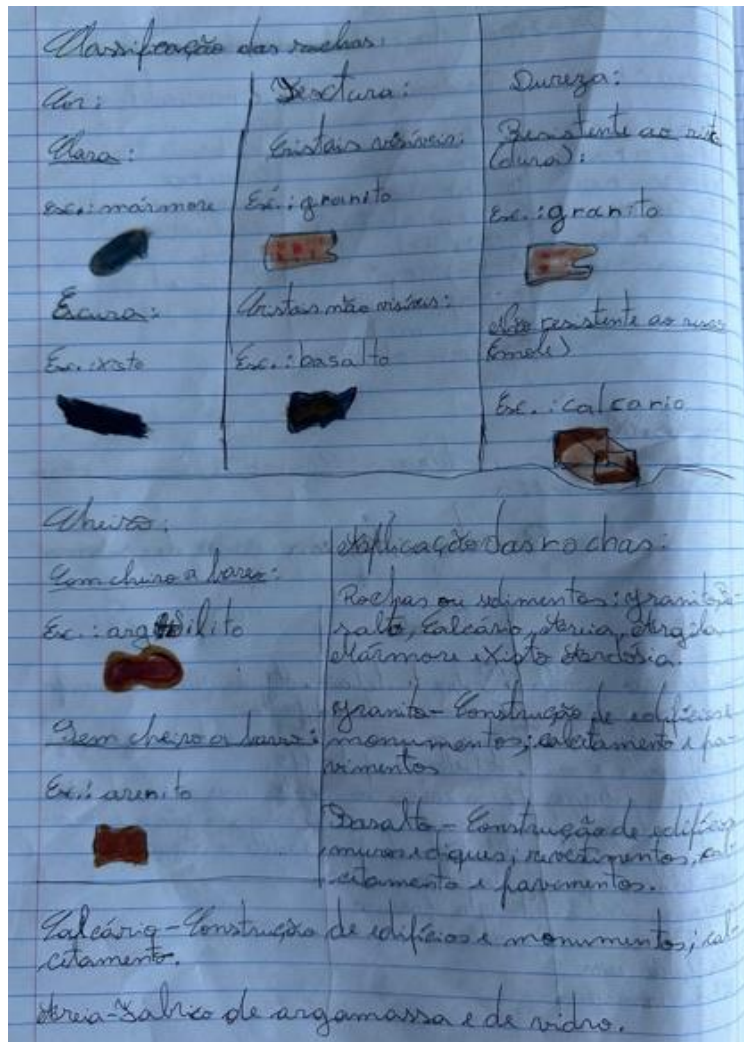 Classificação das rochas:
Cor:
Clara:
Ex.: mármore
Escura:
Ex.: xisto
Textura:
Cristais visíveis:
Ex.: granito
Cristais não visíveis:
Ex.: basalto
Dureza:
Resistente ao
(dura):
Ex.: granito
Não resistente ao risco
(mole)
Ex.: calcario
Cheiro:
Com cheiro a barro:
Ex.: argilito
Sem cheiro a barro:
Ex.: arenito
Aplicação das rochas:
Rochas ou sedimentos: granito,
salto, Calcário, Areia, Argila
Mármore e Xisto Ardósia.
Granito - Construção de edifícios e
monumentos; calcetamento e pa-
vimentos
Basalto - Construção de edifícios
muros e diques; revestimentos, cal-
cetamento e pavimentos.
Calcário - Construção de edifícios e monumentos; cal-
cetamento.
Areia - Fabrico de argamassa e de vidro.